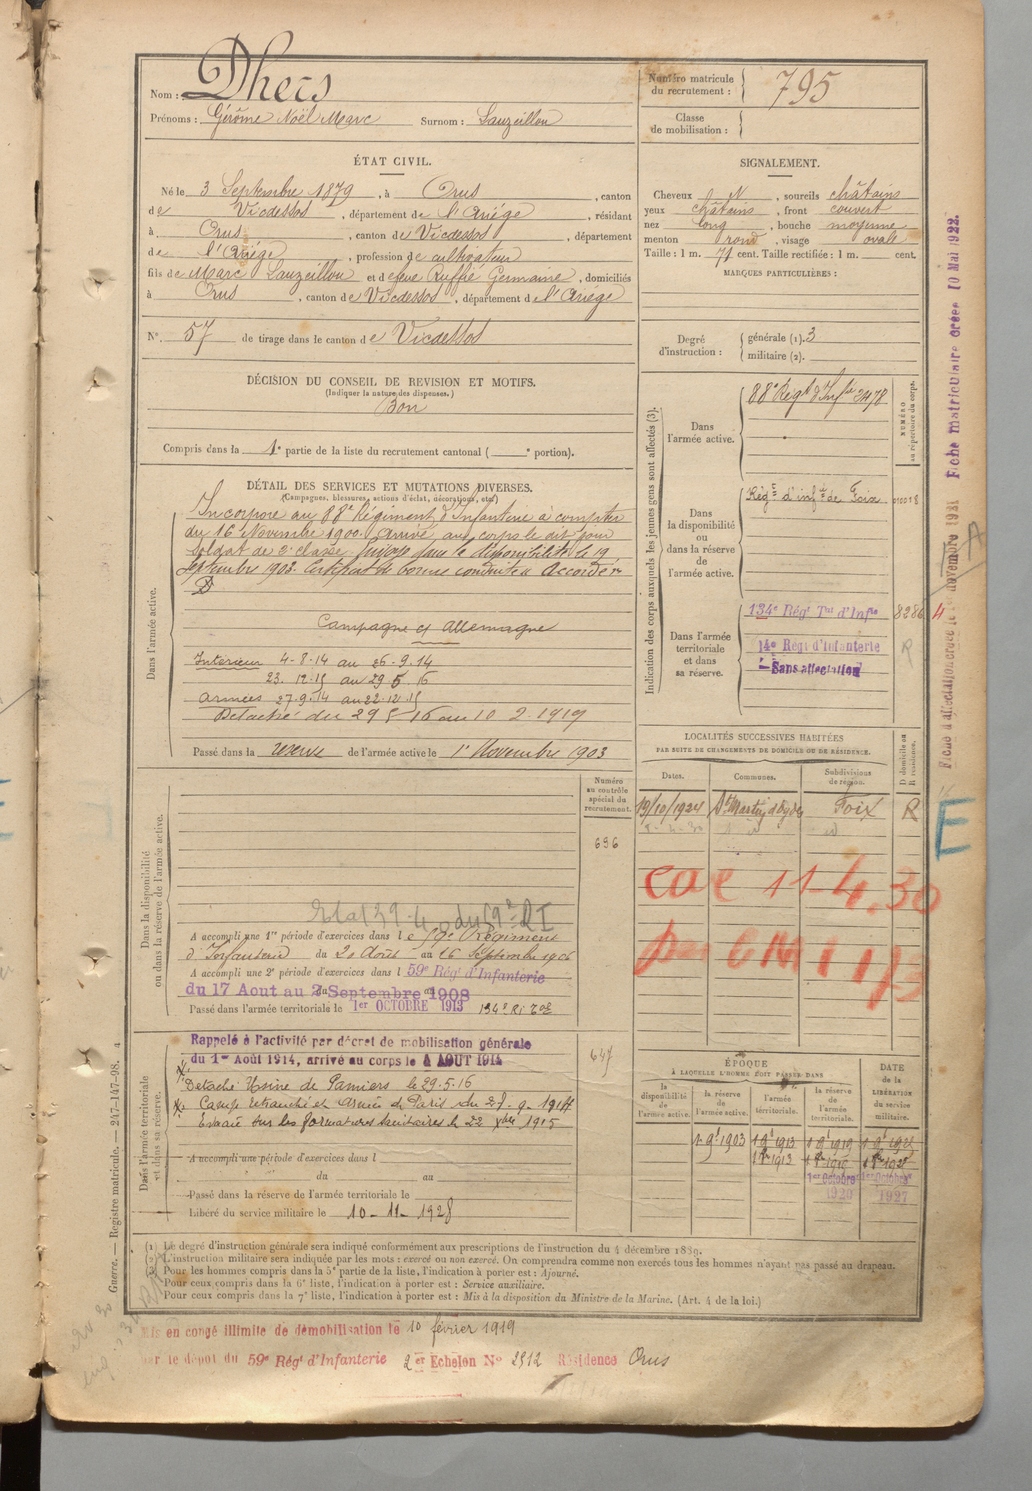 Nom : Dhers
Prénoms : Gérôme Noël Marc Surnom : Lauzeillou
ÉTAT CIVIL.
Né le 3 Septembre 1879, à Orus, canton
de Vicdessos, département de l'Ariège, résidant
à Orus, canton de Vicdessos, département
de l'Ariège, profession de cultivateur
fils de Marc Lauzeillou et de feue Ruffié Germaine, domiciliés
à Orus, canton de Vicdessos, département de l'Ariège
N° 57 de tirage dans le canton de Vicdessos
DÉCISION DU CONSEIL DE REVISION ET MOTIFS.
(Indiquer la nature des dispenses.)
Bon
Compris dans la 1e partie de la liste du recrutement cantonal ( e portion).
DÉTAIL DES SERVICES ET MUTATIONS DIVERSES.
(Campagnes, blessures, actions d'éclat, décorations, etc.)
Dans l'armée active.
Incorporé au 88e Régiment d'Infanterie à compter
du 16 Novembre 1900. Arrivé au corps le dit jour
Soldat de 2e classe. Envoyé dans la disponibilité le 19
Septembre 1903. Certificat de bonne conduite Accordé
Campagne c/ Allemagne
Intérieur 4-8-14 au 26-9-14
23-12-15 au 29-5-16
Armées 27-9-14 au 22-12-15
Détaché du 29 5 16 au 10 2 1919
Passé dans la reserve de l'armée active le 1er Novembre 1903
Dans la disponibilité
ou dans la réserve de l'armée active.
Numéro
au contrôle
spécial du
recrutement.
696
A accompli une 1re période d'exercices dans le 59e Régiment
d'Infanterie du 20 Août au 16 Septembre 1906
A accompli une 2e période d'exercices dans l 59e Régt d'Infanterie
du 17 Aout au 2 Septembre 1908
Passé dans l'armée territoriale le 1er OCTOBRE 1913 134e RI Tale
Dans l'armée territoriale
et dans sa réserve.
Rappelé à l'activité par décret de mobilisation générale
du 1er Août 1914, arrivé au corps le 4 AOUT 1914
647
Détaché Usine de Pamiers le 29.5.16
Camp retranché et Armée de Paris du 27-9-1914
Evacué sur les formations sanitaires le 22 Xbre 1915
A accompli une période d'exercices dans l
du au
Passé dans la réserve de l'armée territoriale le
Libéré du service militaire le 10-11-1928
Numéro matricule
du recrutement : 795
Classe
de mobilisation :
SIGNALEMENT.
Cheveux N, sourcils châtains
yeux châtains, front couvert
nez long, bouche moyenne
menton rond, visage ovale
Taille : 1 m. 71 cent. Taille rectifiée : 1 m. cent.
MARQUES PARTICULIÈRES :
Degré
d'instruction :
générale (1). 3
militaire (2).
Indication des corps auxquels les jeunes gens sont affectés (3).
NUMÉRO
au répertoire du corps.
Dans
l'armée active.
88e Régt d'Infie 2478
Dans
la disponibilité
ou dans la réserve
de
l'armée active.
Régt d'infie de Foix 01001 8
Dans l'armée
territoriale
et dans
sa réserve.
134e Régt Tal d'Infie 8286
14e Régt d'Infanterie R
Sans affectation
LOCALITÉS SUCCESSIVES HABITÉES
PAR SUITE DE CHANGEMENTS DE DOMICILE OU DE RÉSIDENCE.
Dates. Communes. Subdivisions
de région. D domicile ou
R résidence.
19/10/1924 Foix R
cae 11-4.30
ÉPOQUE
À LAQUELLE L'HOMME DOIT PASSER DANS
la
disponibilité
de
l'armée active. la réserve
de
l'armée active. l'armée
territoriale. la réserve
de
l'armée
territoriale. DATE
de la
LIBÉRATION
du service
militaire.
1909
1er Octobre 1er Octobre
1920 1927
Fiche d'affectation créée le novembre 1921 Fiche matriculaire créée 10 Mai 1922.
A
E
Guerre. — Registre matricule. — 247-147-98. 4
(1) Le degré d'instruction générale sera indiqué conformément aux prescriptions de l'instruction du 4 décembre 1889.
(2) L'instruction militaire sera indiquée par les mots : exercé ou non exercé. On comprendra comme non exercés tous les hommes n'ayant pas passé au drapeau.
(3) Pour les hommes compris dans la 5e partie de la liste, l'indication à porter est : Ajourné.
Pour ceux compris dans la 6e liste, l'indication à porter est : Service auxiliaire.
Pour ceux compris dans la 7e liste, l'indication à porter est : Mis à la disposition du Ministre de la Marine. (Art. 4 de la loi.)
Mis en congé illimité de démobilisation le 10 février 1919
par le dépôt du 59e Régt d'Infanterie 2er Echelon N° 2512 Résidence Orus